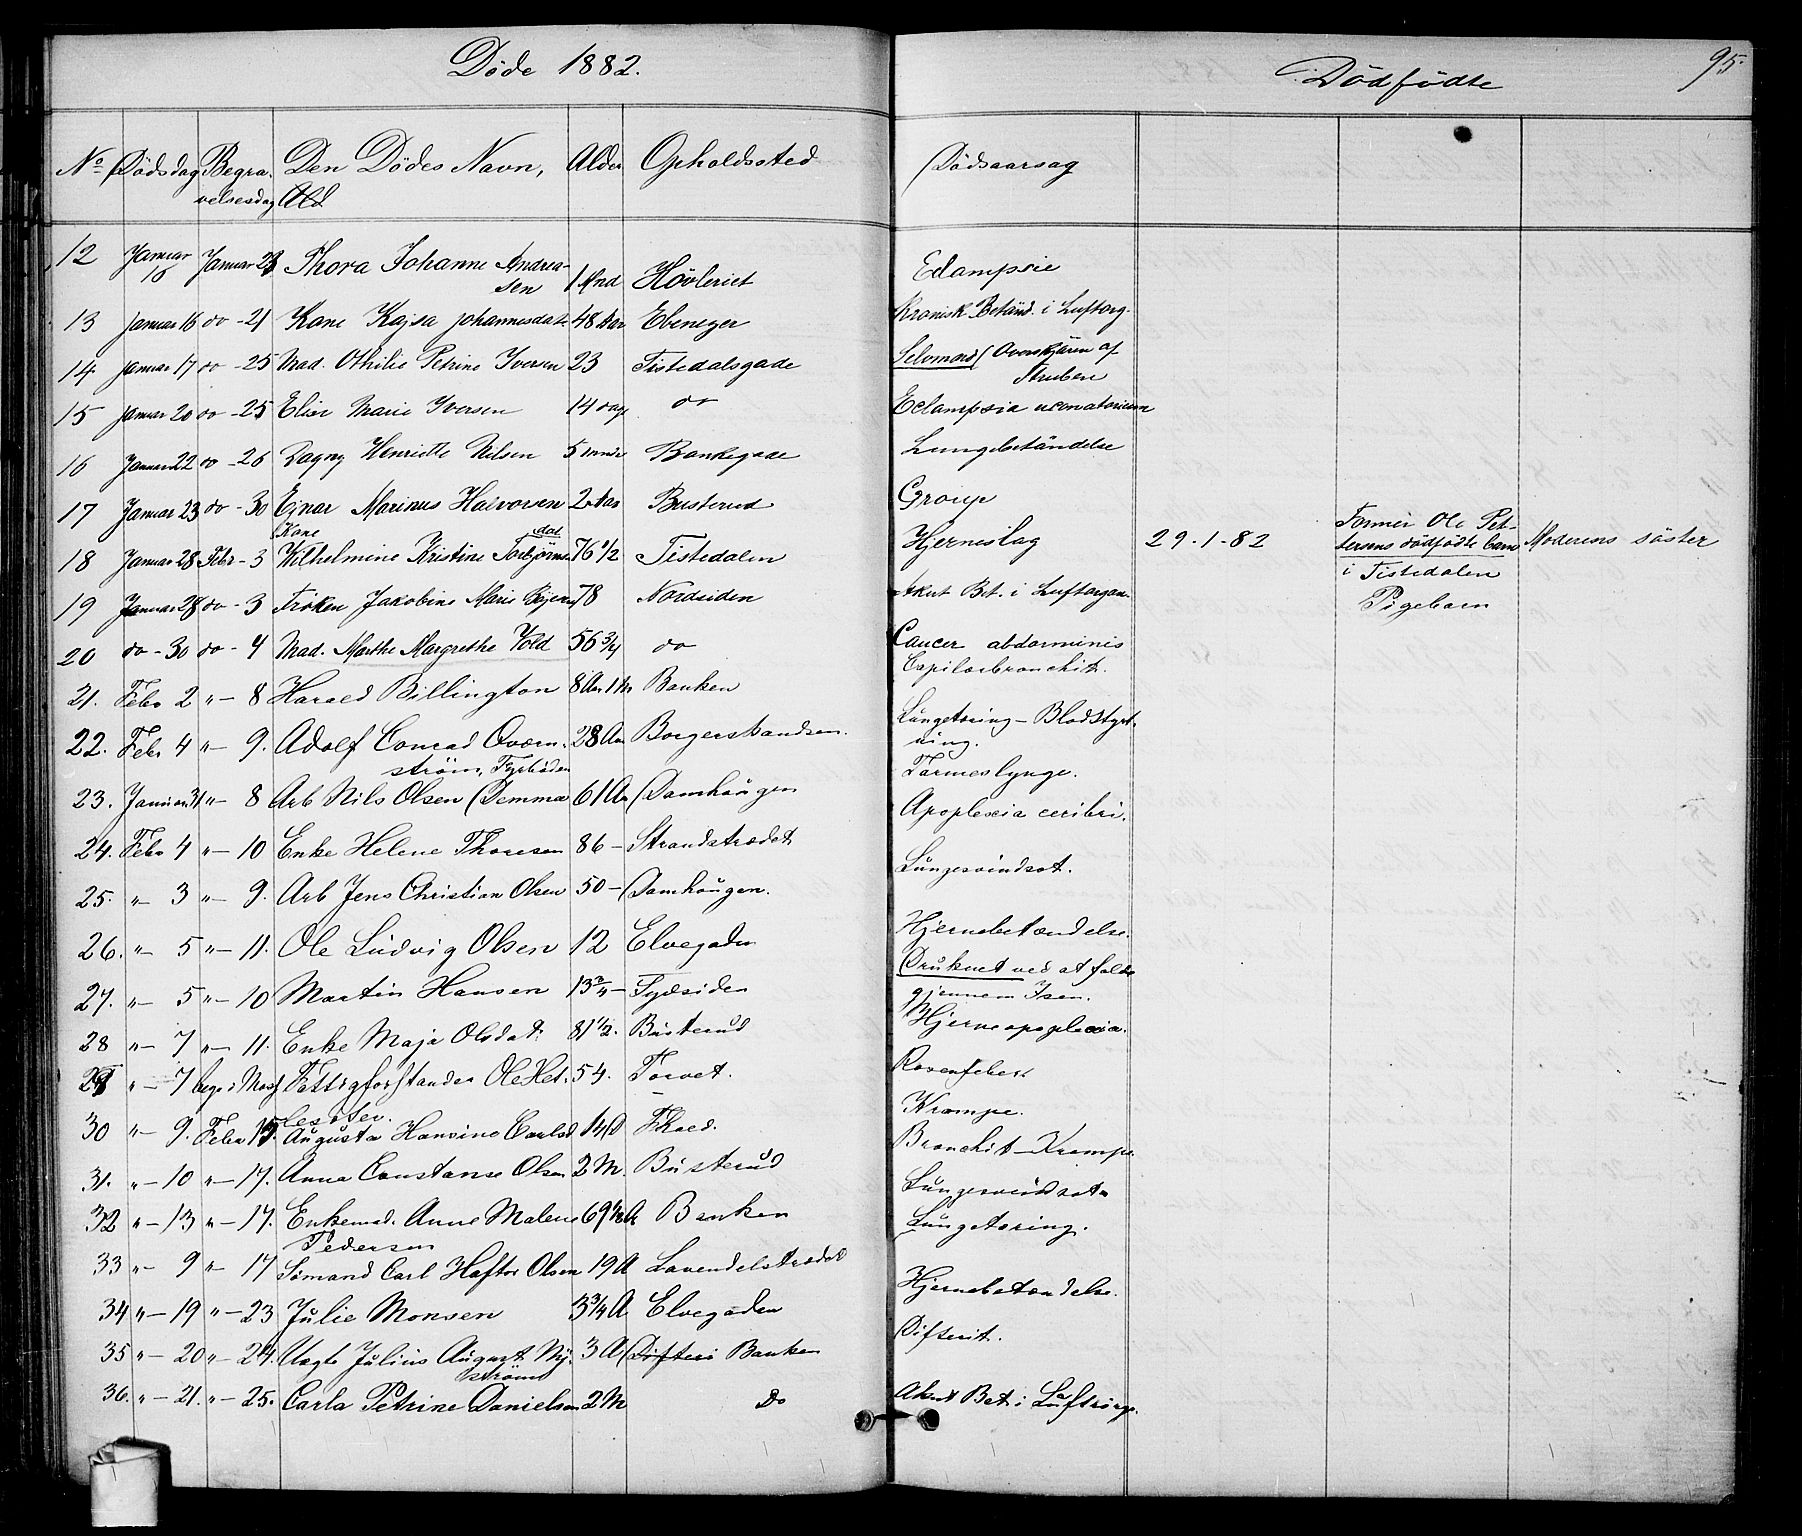 Døde 1882.
Dödfödte
95
No Dödsdag Begra- Den Dödes Navn, Alder Opholdssted Dödsaarsag
velsesdag
12 Januar 16 Januar 23 Thora Johanne Andrea- Eclampsie
sen 1 Mnd Hövleriet
13 Januar 16 do - 21 Kone Kajsa Johannesdat. 48 Aar Ebenezer Kronisk Betänd. i Luftorg.
14 Januar 17 do - 25 Mad. Othilie Petrine Iversen 23 Tistedalsgade Selvmord (Overskjären af
Struben
15 Januar 20 do - 25 Elise Marie Iversen 14 dage do Eclampsia neonatorium
16 Januar 22 do - 26 Dagny Henriette Nilsen 5 mndr Bankegade Lungebetändelse
17 Januar 23 do - 30 Ejnar Marinus Halvorsen 2 Aar Busterud Croup
Kone dat.
18 Januar 28 Febr - 3 Wilhelmine Kristine Torbjörns 76 1/2 Tistedalen Hjerneslag 29-1-82 Former Ole Pet-
tersens dödfödte barn Moderens söster
i Tistedalen
Pigebarn
19 Januar 28 do - 3 Fröken Jakobine Marie 78 Nordsiden Akut Bet. i Luftorgan.
20 do - 30 do - 4 Mad. Marthe Margrethe Vold 56 3/4 do Cancer abdominis
21. Febr 2 " - 8 Harald Billington 8 Aar 1 M Banken Capilærbronchit.
22. Febr 4 " - 9. Adolf Conrad Overn- 28 Aar Borgerskandsen. Lungetæring - Blodstyrt-
ström, Fyrbøder ning.
23. Januar 31 " - 8 Arb Nils Olsen (Demma 61 Aar Damhaugen Tarmeslynge.
24. Febr 4 " - 10 Enke Helene Thoresen 86 - Strandstrædet Apoplexia ceribri.
25. " - 3 " - 9. Arb Jens Christian Olsen 50 - Damhaugen. Lungesvindsot.
26. " - 5 " - 11. Ole Ludvig Olsen 12 Elvegaden Hjernebetændelse.
27. " - 5 " - 10 Martin Hansen 13 3/4 - Sydsiden Druknet ved at falde
gjennem Isen.
28 " - 7 " - 11. Enke Maja Olsdat. 81 1/2. Busterud Hjerneapoplexia.
29 " - 7 begr i Moss Fattigforstander Ole Het- 54. Torvet. Rosenfeber
lesäter.
30 " - 9. Febr 15. Augusta Hansine Carlsd 14 D Fkoed. Krampe.
31. " - 10 " - 17. Anna Constanse Olsen 2 M. Busterud Bronchit - Krampe
32 " - 13 " - 17. Enkemad. Anne Malene 69 1/2 A Banken Lungesvindsot
Pedersen
33 " - 9 " - 17 Sömand Carl Haftor Olsen 19 A Lavendelstrædet Lungetæring.
34 " - 19 " - 23 Julie Monsen 3 3/4 A Elvegaden Hjernebetændelse.
35 " - 20 " - 24. Uægte Julius August Ny- 3 A Difteri Banken Difterit.
ström
36. " - 21. " - 25. Carla Petrine Danielsen 2 M Do Akut Bet i Luftrör.